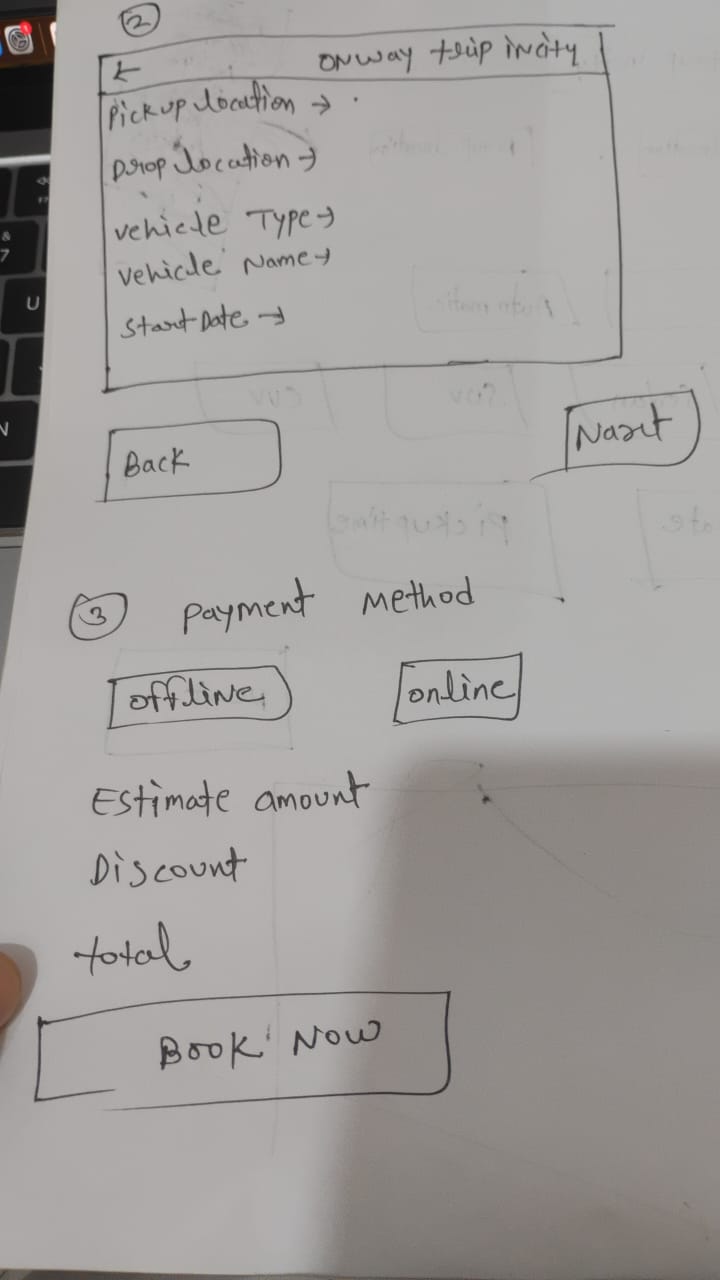 2
← ONWAY trip incity
Pickup location →
Drop location →
vehicle Type →
vehicle Name →
Start Date →
Back
Naxt
3 payment Method
offline online
Estimate amount
Discount
total
Book Now